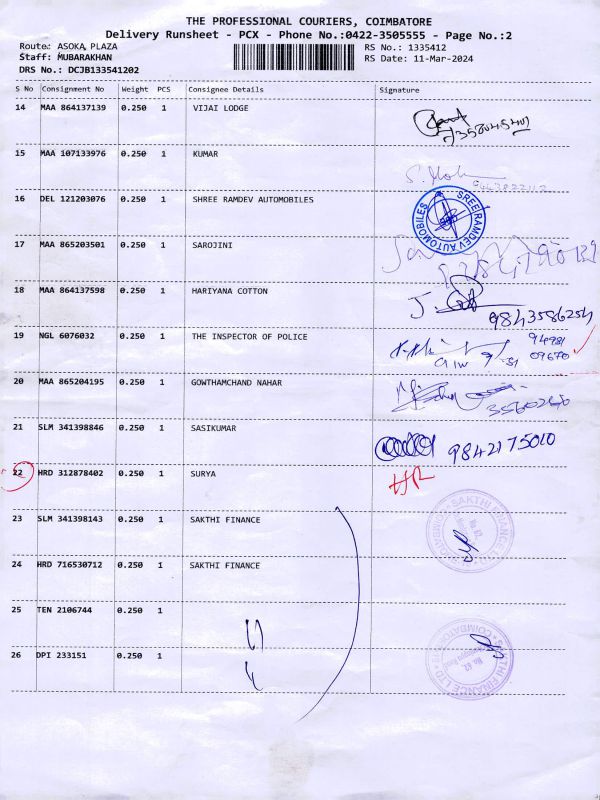 THE PROFESSIONAL COURIERS, COIMBATORE
Delivery Runsheet - PCX - Phone No.:0422-3505555 - Page No.:2
Route: ASOKA PLAZA RS No.: 1335412
Staff: MUBARAKHAN RS Date: 11-Mar-2024
DRS No.: DCJB133541202
S No Consignment No Weight PCS Consignee Details Signature
14 MAA 864137139 0.250 1 VIJAI LODGE
15 MAA 107133976 0.250 1 KUMAR
16 DEL 121203076 0.250 1 SHREE RAMDEV AUTOMOBILES
SREE RAMDEV AUTOMOBILES
17 MAA 865203501 0.250 1 SAROJINI
18 MAA 864137598 0.250 1 HARIYANA COTTON
9843586254
19 NGL 6076032 0.250 1 THE INSPECTOR OF POLICE
94981
09670
20 MAA 865204195 0.250 1 GOWTHAMCHAND NAHAR
21 SLM 341398846 0.250 1 SASIKUMAR
9842175010
22 HRD 312878402 0.250 1 SURYA
23 SLM 341398143 0.250 1 SAKTHI FINANCE
SAKTHI FINANCE LTD
24 HRD 716530712 0.250 1 SAKTHI FINANCE
25 TEN 2106744 0.250 1
26 DPI 233151 0.250 1
SAKTHI FINANCE LTD